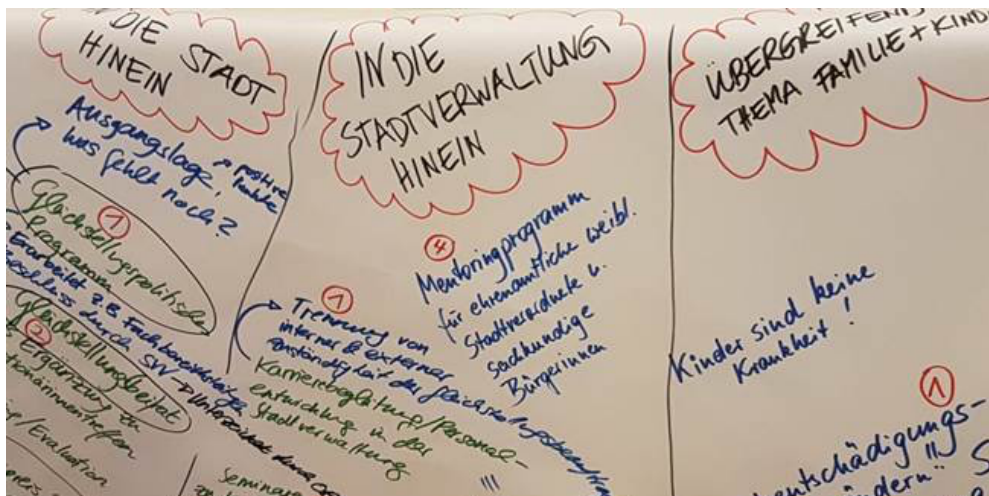 DIE STADT
HINEIN
Ausgangslage,
was fehlt noch?
positive
①
Gleichstellungspolitisches
Programm
Erarbeitet z.B. Fachbereichs
Beschluss durch SVV
②
Gleichstellungsbeirat
Ergänzung zu
/Evaluation
Seminare
IN DIE
STADTVERWALTUNG
HINEIN
④
Mentoringprogramm
für ehrenamtliche weibl.
Stadtverordnete u.
sachkundige
Bürgerinnen
①
Trennung von
interner & externer
Zuständigkeit der Gleichstellungsbeauftragten
Karrierebegleitung/Personal-
entwicklung in der
Stadtverwaltung
!!!
ÜBERGREIFEND
THEMA FAMILIE + KIND
Kinder sind keine
Krankheit!
①
entschädigungs-